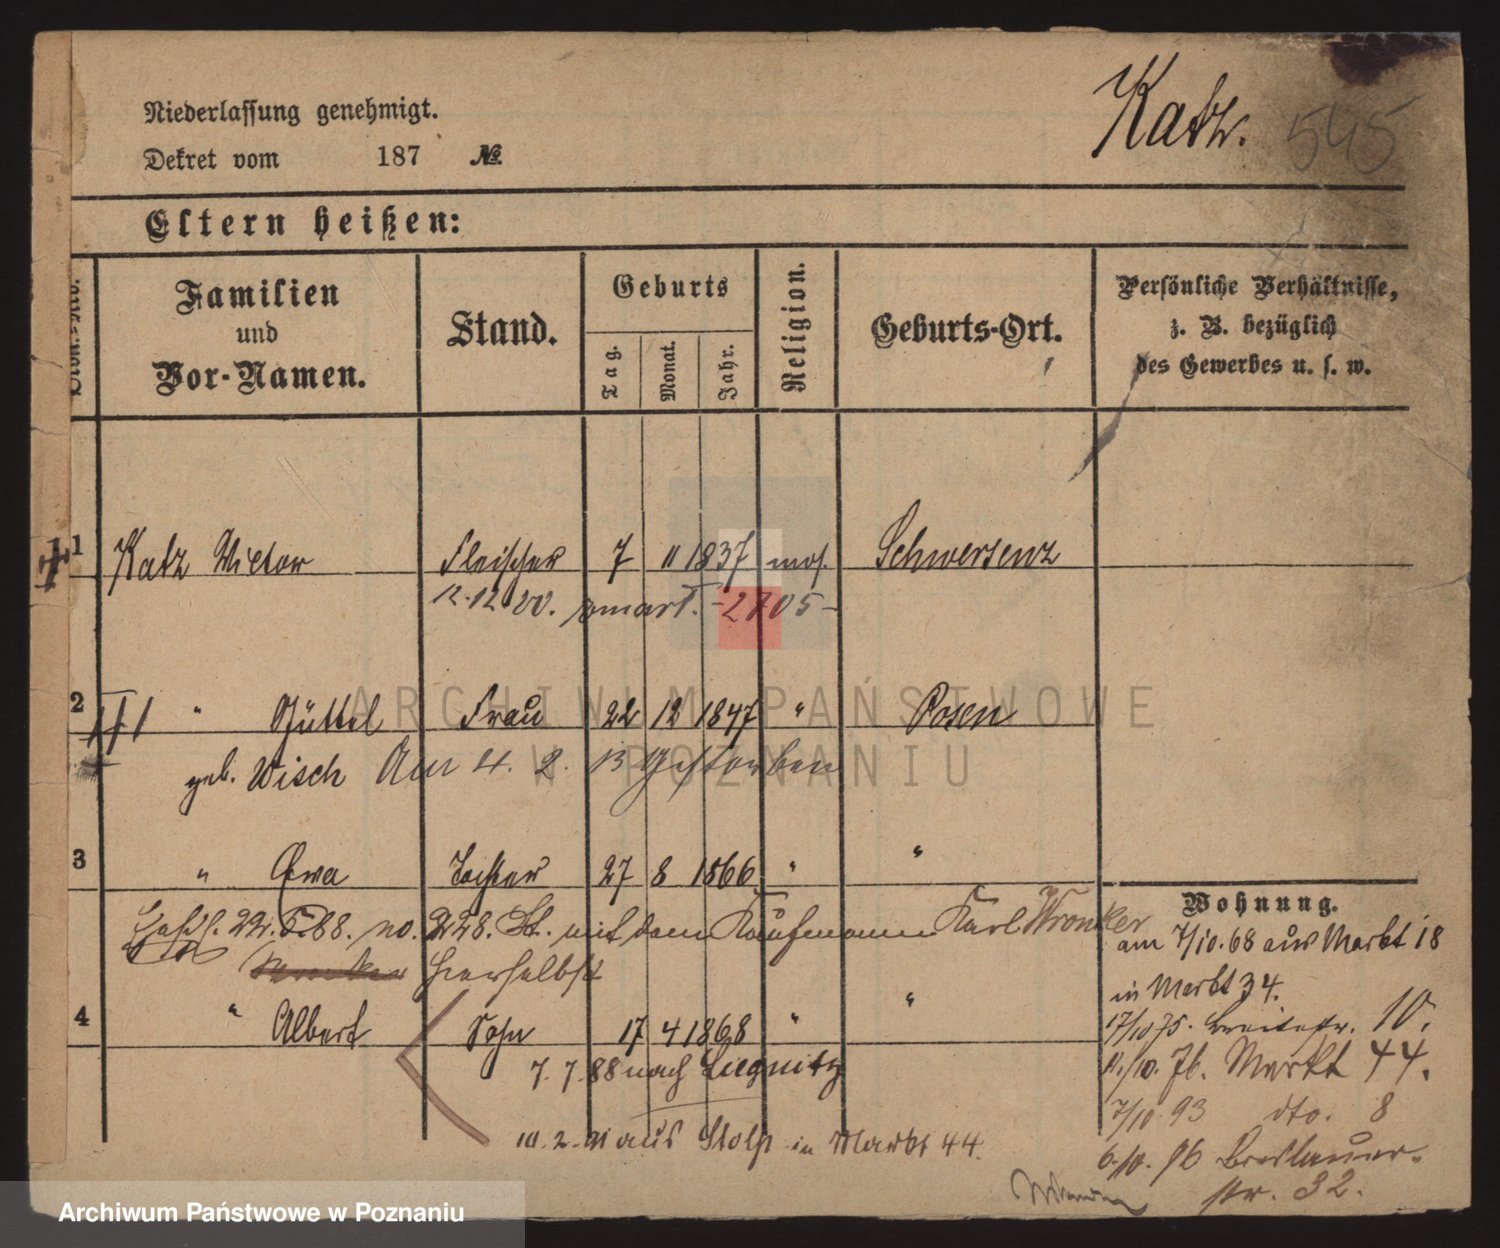 Niederlassung genehmigt.
Katz. 545
Dekret vom 187 №
Eltern heißen:
Familien und Vor-Namen.
Stand.
Geburts
Tag.
Monat.
Jahr.
Religion.
Geburts-Ort.
Persönliche Verhältnisse,
z. B. bezüglich
des Gewerbes u. s. w.
1 Katz Victor Fleischer 7 11 1837 mos. Schwersenz
12.12.00. -2705-
2 " Jüttel Frau 22 12 1847 " Posen
geb. Wisch Am 4. 2. 13 gestorben
3 " Ewa Tochter 27 8 1866 " "
22. 5. 88. no. 228. St. mit dem Kaufmann Karl Wronker
hierselbst
4 " Albert Sohn 17 4 1868 " "
7. 7. 88 nach Liegnitz
aus Stolp in Markt 44.
Wohnung.
am 7/10.68 aus Markt 18
in Markt 34.
17/10 75. Breitestr. 10.
/10. 76. Markt 44.
7/10 93 dto. 8
6/10. 96 Breslauer-
str. 32.
ARCHIWUM PAŃSTWOWE
W POZNANIU
Archiwum Państwowe w Poznaniu